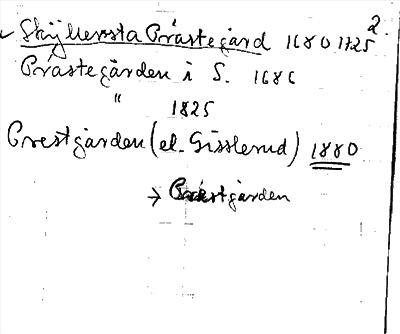 2.
Skyllersta Prästegård 1680 1725
Prästegården i S. 1686
" 1825
Prestgården (el. Gisslerud) 1880
→ Prästgården